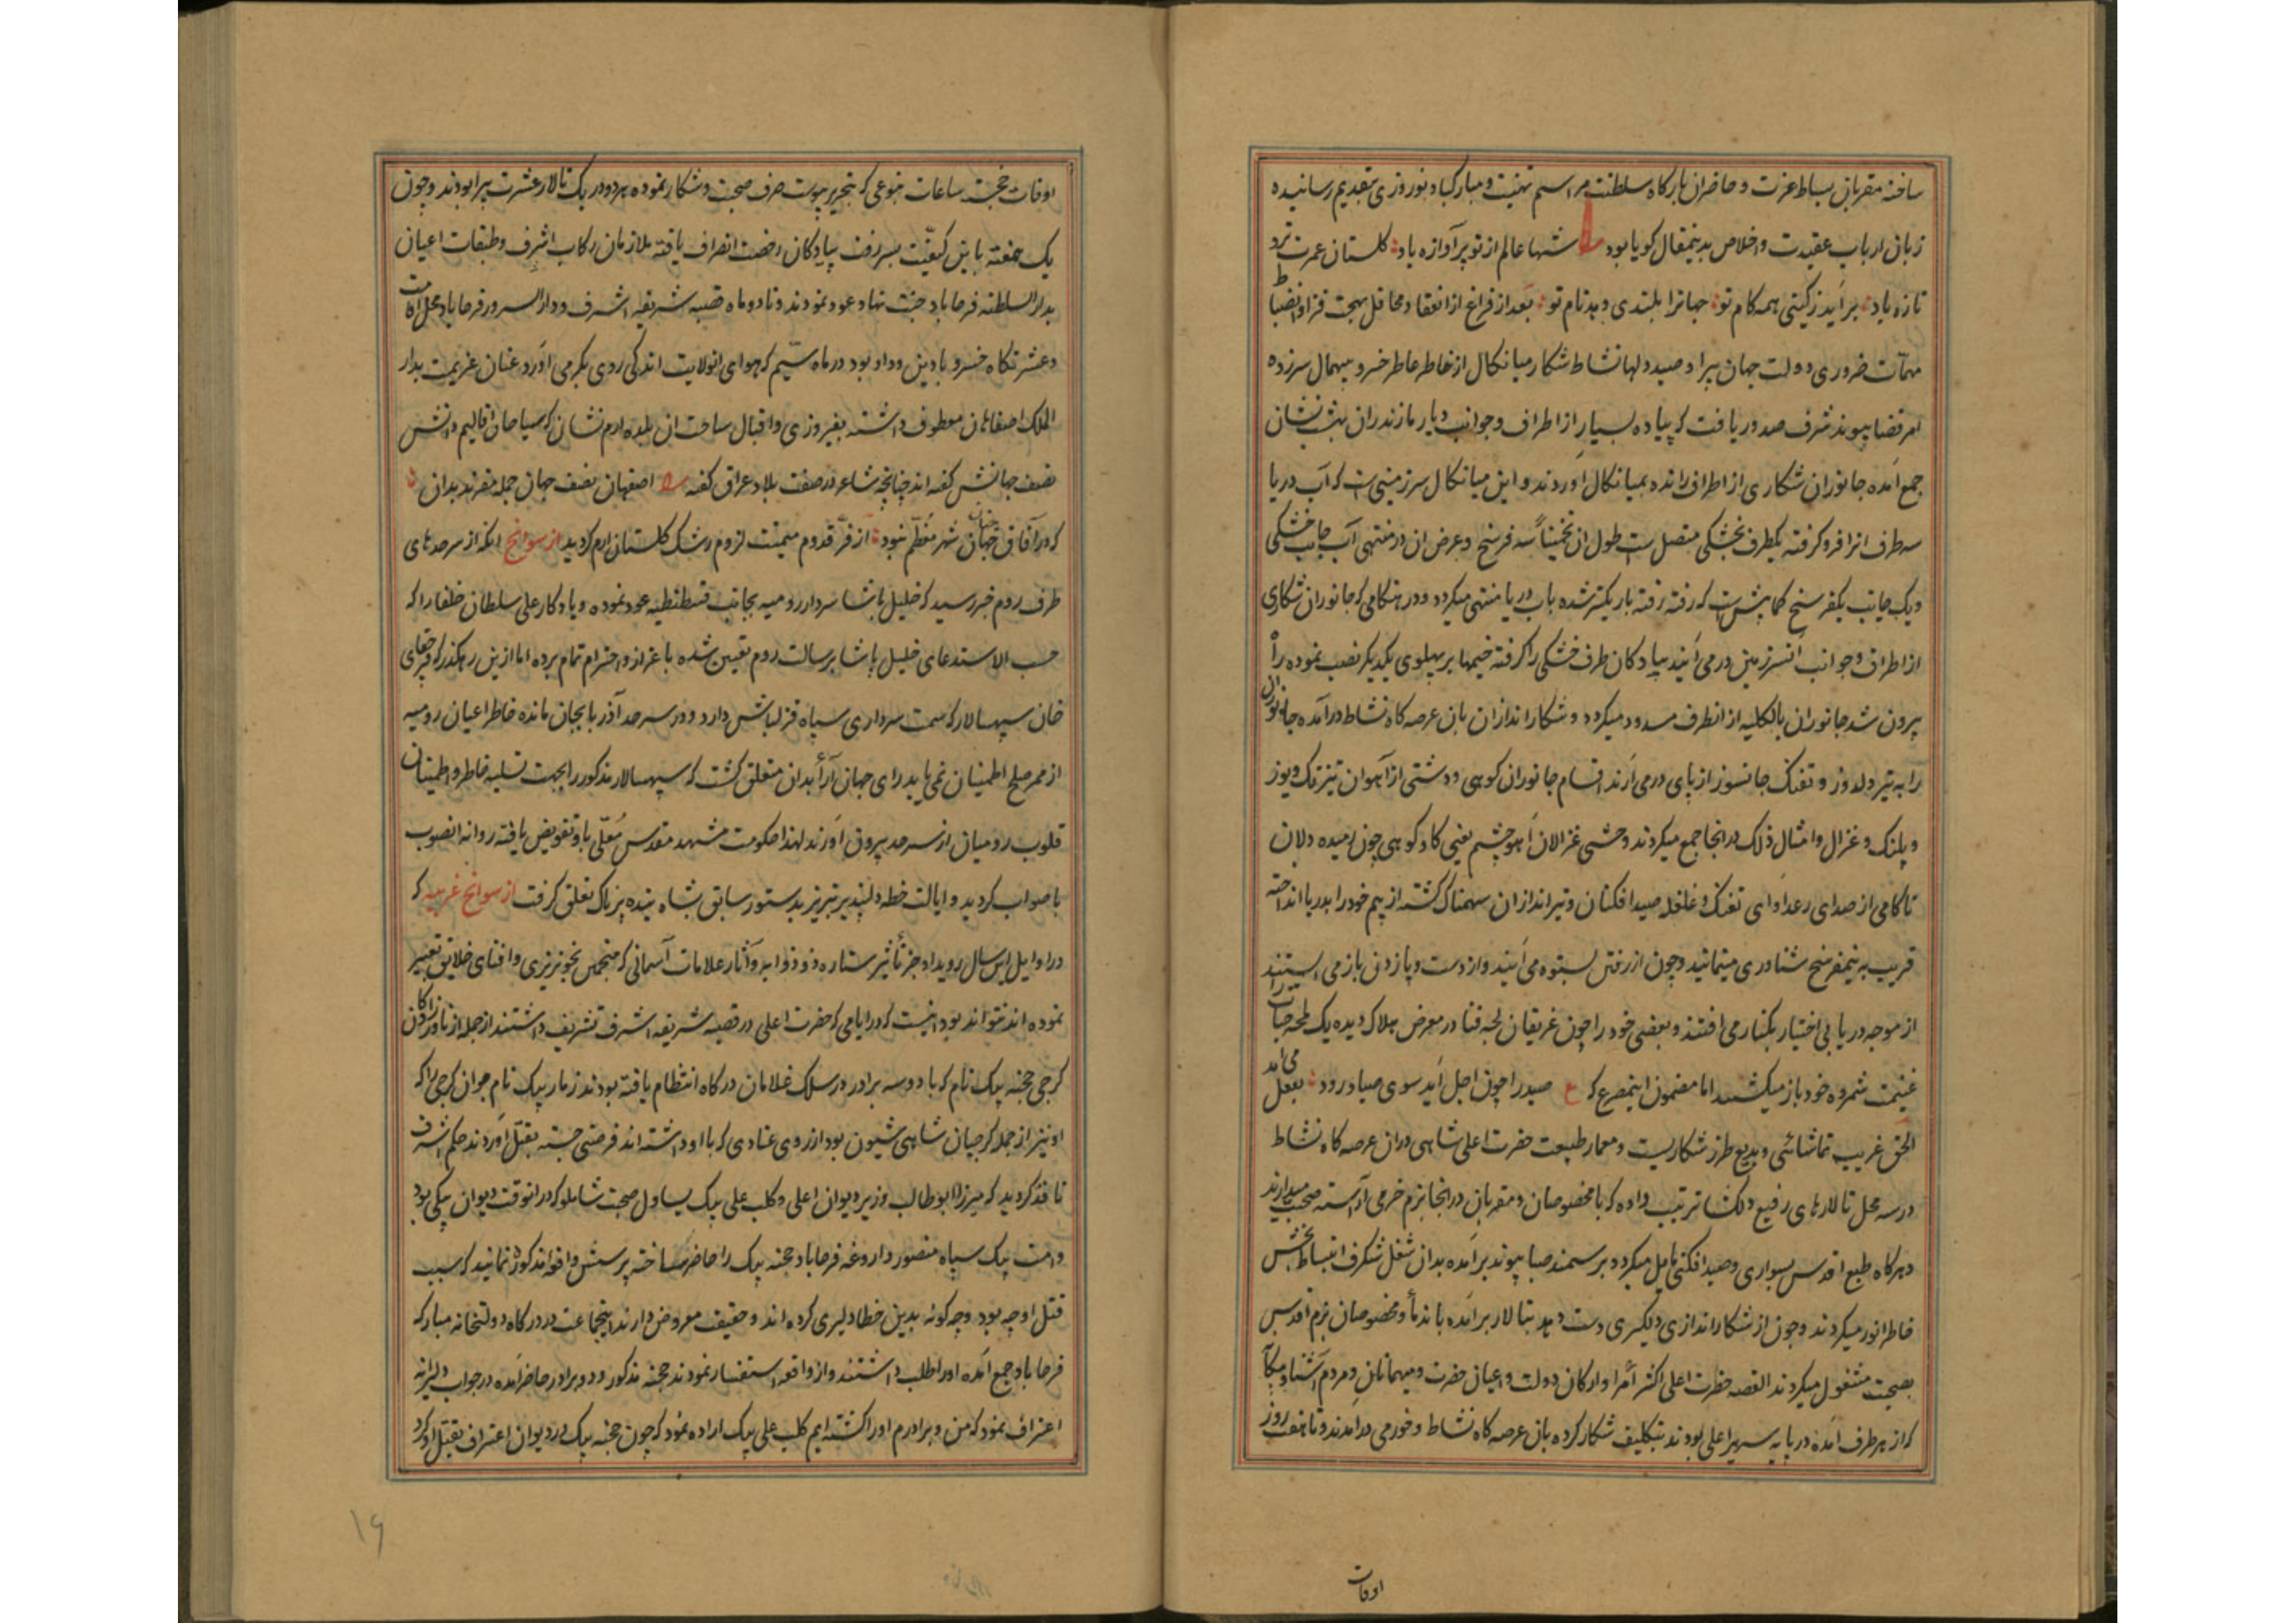 ساخته مقربان بساط عزت و حاضران بارگاه سلطنت مراسم تهنیت و مبارکباد نوروزی بتقدیم رسانیده
زبان ارباب عقیدت و اخلاص بدینمقال کویا بود شها عالم از تو پر آوازه باد کلستان عمرت تر و
تازه باد برآید زکیتی همه کام تو جهانرا بلندی دهد نام تو بعد از فراغ از انعقاد محافل بهجت فزا و انضباط
مهمات ضروری دولت جهان پیرا و صید دلها نشاط شکار میانکال از خاطر عاطر خسرو بیهمال سرزده
امر قضا پیوند شرف صدور یافت که پیاده بسیار از اطراف و جوانب دیار مازندران بهشت نشان
جمع آمده جانوران شکاری از اطراف رانده بمیانکال آوردند و این میانکال سرزمینی است که آب دریا
سه طرف انرا فرو کرفته یکطرف بخشکی متصل است طول ان تخمیناً سه فرسخ و عرض ان در منتهی آب جانب خشکی
و یک جانب یکفرسخ کمابیش است که رفته رفته باریکتر شده باب دریا منتهی میکردد و در هنکامی که جانوران شکاری
از اطراف و جوانب آنسرزمین در می آیند پیادکان طرف خشکی را کرفته خیمها بر پهلوی یکدیکر نصب نموده راه
بیرون شد جانوران بالکلیه از انطرف مسدود میکردد و شکار اندازان بان عرصه کاه نشاط درآمده جانوران
را به تیر دلدوز و تفنک جانسوز از پای در می آرند اقسام جانوران کوهی و دشتی از آهوان تیزتک و یوز
و پلنک و غزال و امثال ذلک در انجا جمع میکردند وحشی غزالان آهو چشم یعنی کاو کوهی چون رمیده دلان
ناکامی از صدای رعد آوای تفنک و غلغله صید افکنان و تیر اندازان سهمناک کشته از بیم خود را بدریا انداخته
قریب به نیمفرسخ شناوری مینمایند و چون از رفتن بستوه می آیند و از دست و پا زدن باز می ایستند
از موجه دریا بی اختیار بکنار می افتند و بعضی خود را چون غریقان لجه فنا در معرض هلاک دیده یک لمحه حیات را
غنیمت شمرده خود باز میکشند اما مضمون اینمصرع که ع صید را چون اجل آید سوی صیاد رود بفعل می آمد
الحق غریب تماشائی و بدیع طرز شکاریست و معمار طبیعت حضرت اعلی شاهی دران عرصه کاه نشاط
در سه محل تالارهای رفیع دلکشا ترتیب داده که با مخصوصان و مقربان در انجا بزم خرمی آراسته صحبت میدارند
و هرکاه طبع اقدس بسواری و صید افکنی مایل میکردد بر سمند صبا پیوند برآمده بدان شغل شکرف انبساط بخش
خاطر انور میکردند و چون از شکار اندازی دلکیری دست دهد بتالار برآمده با ندما و مخصوصان بزم اقدس
بصحبت مشغول میکردند القصه حضرت اعلی اکثر امرا و ارکان دولت و اعیان حضرت و میهمانان و مردم آشنا و بیکانه
که از هر طرف آمده در پایه سریر اعلی بودند تکلیف شکار کرده بان عرصه کاه نشاط و خورمی درآمدند و تا هفت روز
اوقات
اوقات خجسته ساعات بنوعی که بتحریر پیوست صرف صحبت و شکار نموده هر دو در یک تالار عشرت پیرا بودند و چون
یک هفته باین کیفیت بسر رفت پیادکان رخصت انصراف یافته ملازمان رکاب اشرف و طبقات اعیان
بدار السلطنه فرحاباد جنت نهاد عود نمودند و تا دو ماه قصبه شریفه اشرف و دار السرور فرحاباد محل اقامت
و عشرتکاه خسرو با دین و داد بود در ماه سیم که هوای انولایت اندکی روی بکرمی آورد عنان عزیمت بدار
الملک اصفاهان معطوف داشته بفیروزی و اقبال ساحت ان بلده ارم نشان که سیاحان اقالیم دانش
نصف جهانش کفته اند چنانچه شاعر در صفت بلاد عراق کفته اصفهان نصف جهان جمله مقرند بدان
که در آفاق چنان شهر معظم نبود از فر قدوم میمنت لزوم رشک کلستان ارم کردید از سوانح انکه از سرحدهای
طرف روم خبر رسید که خلیل پاشا سردار رومیه بجانب قسطنطنیه عود نموده و یادکار علی سلطان خلفا را که
حسب الاستدعای خلیل پاشا برسالت روم تعیین شده با عزاز و احترام تمام برده اما ازین رهکذر که قرچقای
خان سپهسالار که سمت سرداری سپاه قزلباش دارد و در سرحد آذربایجان مانده خاطر اعیان رومیه
از ممر صلح اطمینان نمی یابد رای جهان آرا بدان متعلق کشت که سپهسالار مذکور را بجهت تسلیه خاطر و اطمینان
قلوب رومیان از سرحد بیرون آورند لهذا حکومت مشهد مقدس معلی باو تفویض یافته روانه انصوب
باصواب کردید و ایالت خطه دلپذیر تبریز بدستور سابق بشاه بنده پرناک تعلق کرفت از سوانح غریبه که
در اوایل این سال رویداد جز تأثیر ستاره ذو ذوابه و آثار علامات آسمانی که منجمین بخونریزی و افنای خلایق تعبیر
نموده اند نتواند بود اینست که در ایامی که حضرت اعلی در قصبه شریفه اشرف تشریف داشتند از جمله
کرجی خجسته بیک نام که با دو سه برادر در سلک غلامان درکاه انتظام یافته بودند زمار بیک نام جوان کرجی را که
او نیز از جمله کرجیان شاهی شیون بود از روی عنادی که با او داشته اند فرصتی جسته بقتل آوردند حکم اشرف
نافذ کردید که میرزا ابوطالب وزیر دیوان اعلی و کلب علی بیک یساول صحبت شاملو که در انوقت دیوان بیکی بود
و بیک سپاه منصور داروغه فرحاباد خجسته بیک را حاضر ساخته پرسش واقعه مذکور نمایند که سبب
قتل او چه بود و چه کونه بدین خطا دلیری کرده اند و حقیقت معروض دارند اینجماعت در درکاه دولتخانه مبارکه
فرحاباد جمع آمده او را طلب داشتند و از واقعه استفسار نمودند خجسته مذکور و دو برادر حاضر آمده در جواب دلیرانه
اعتراف نمود که من و برادرم او را کشته ایم کلب علی بیک اراده نمود که چون خجسته بیک در دیوان اعتراف بقتل او کرد
۱۶